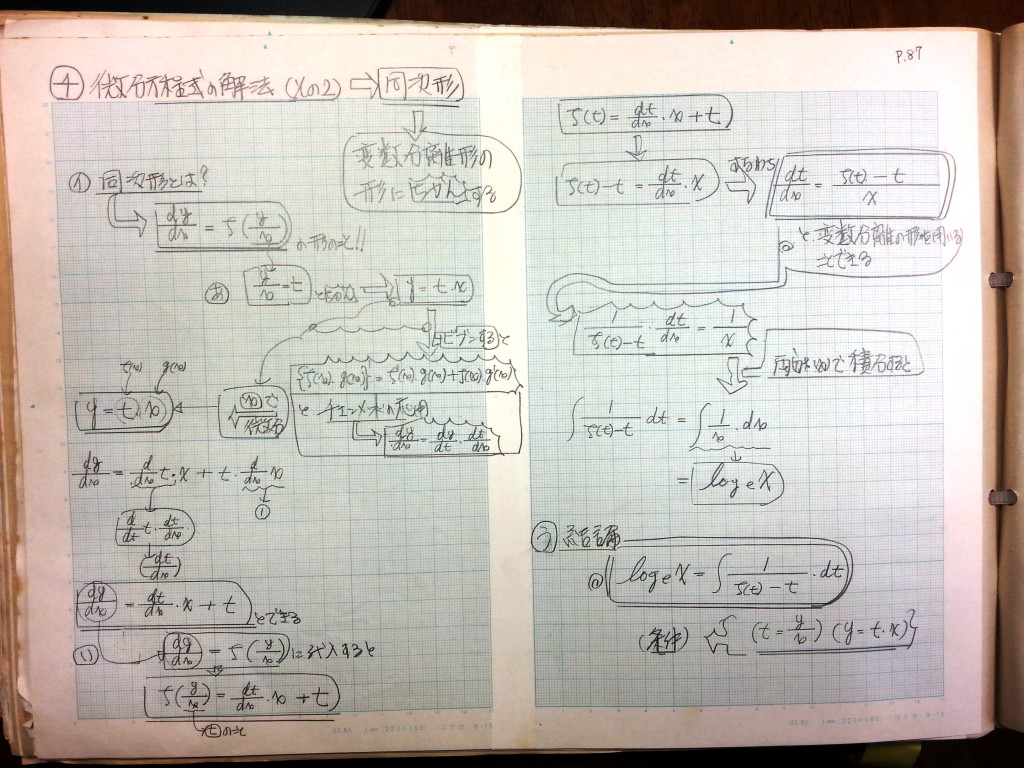 P.87
④ 微分方程式の解法 (その2) ⇨ 同次形
変数分離形の
形に
① 同次形とは?
dy/dx = f(y/x) の形のこと!!
あ y/x = t とおけば ⇨ y = t・x
ビブンすると
{f(x)・g(x)}' = f'(x)・g(x)+f(x)・g'(x)
と チェンメホウの応用
dy/dx = dy/dt・dt/dx
f(x) g(x)
y = t・x
(x)で
微分
dy/dx = d/dx t・x + t・d/dx x
1
d/dt t・dt/dx
(dt/dx)
dy/dx = dt/dx・x + t とできる
い dy/dx = f(y/x) に代入すると
f(y/x) = dt/dx・x + t
tのこと
f(t) = dt/dx・x + t
f(t) - t = dt/dx・x ⇨ すなわち dt/dx = f(t) - t / x
と、変数分離の形を用いる
ことできる
1/f(t)-t・dt/dx = 1/x
両辺をxで積分すると
∫ 1/f(t)-t dt = ∫ 1/x・dx
= log e x
う 結論
log e x = ∫ 1/f(t) - t・dt
(条件) (t = y/x) (y = t・x)